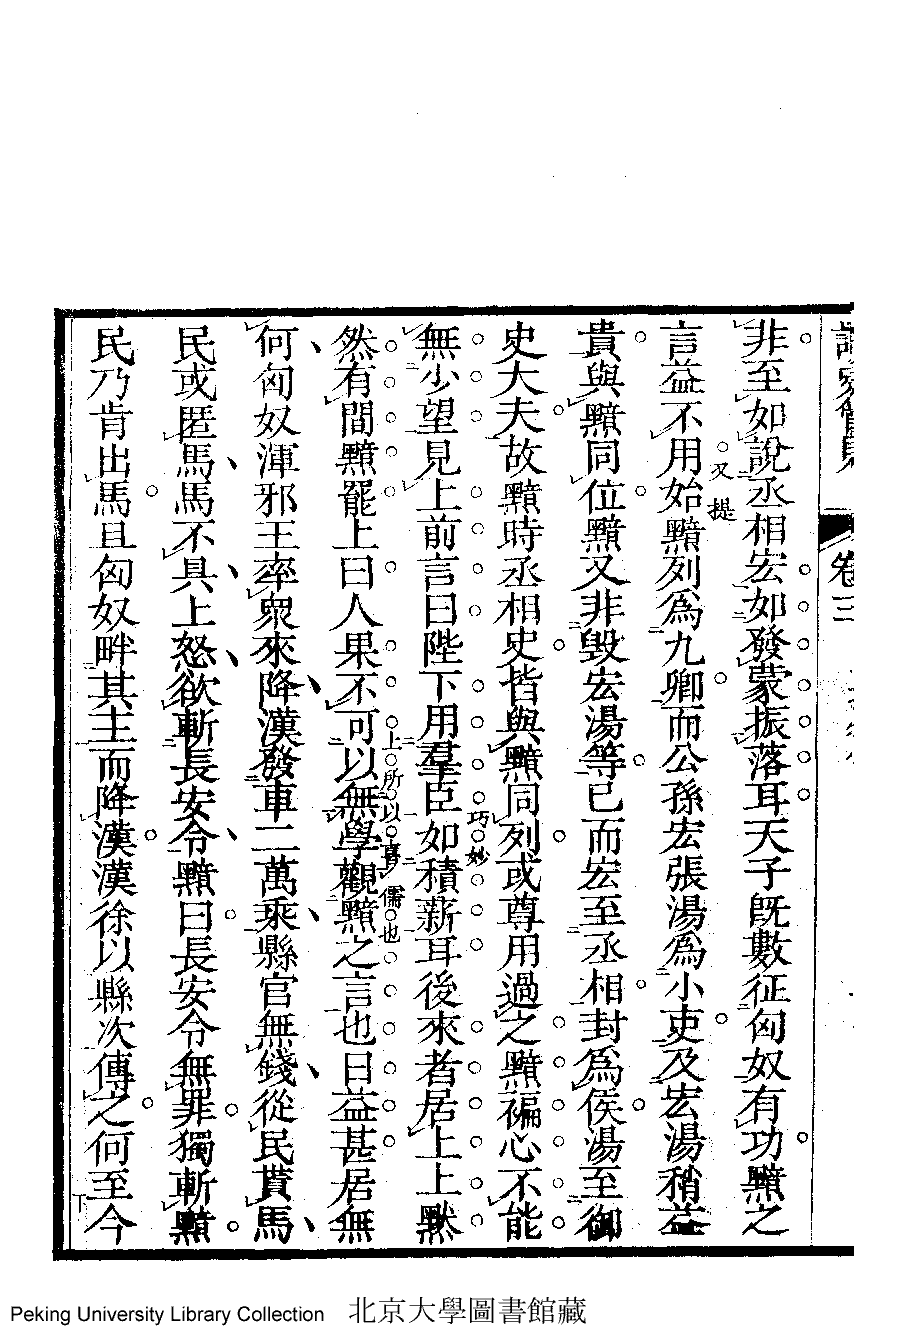 卷三
非至如說丞相宏如發蒙振落耳天子既數征匈奴有功黯之
言益不用始黯列爲九卿而公孫宏張湯爲小吏及宏湯稍益
又提
貴與黯同位黯又非毀宏湯等已而宏至丞相封爲侯湯至御
史大夫故黯時丞相史皆與黯同列或尊用過之黯褊心不能
無少望見上前言曰陛下用羣臣如積薪耳後來者居上上默
巧妙
然有間黯罷上曰人果不可以無學觀黯之言也日益甚居無
上所以喜儒也
何匈奴渾邪王率衆來降漢發車二萬乘縣官無錢從民貰馬
民或匿馬馬不具上怒欲斬長安令黯曰長安令無罪獨斬黯
民乃肯出馬且匈奴畔其主而降漢漢徐以縣次傳之何至今
Peking University Library Collection 北京大學圖書館藏